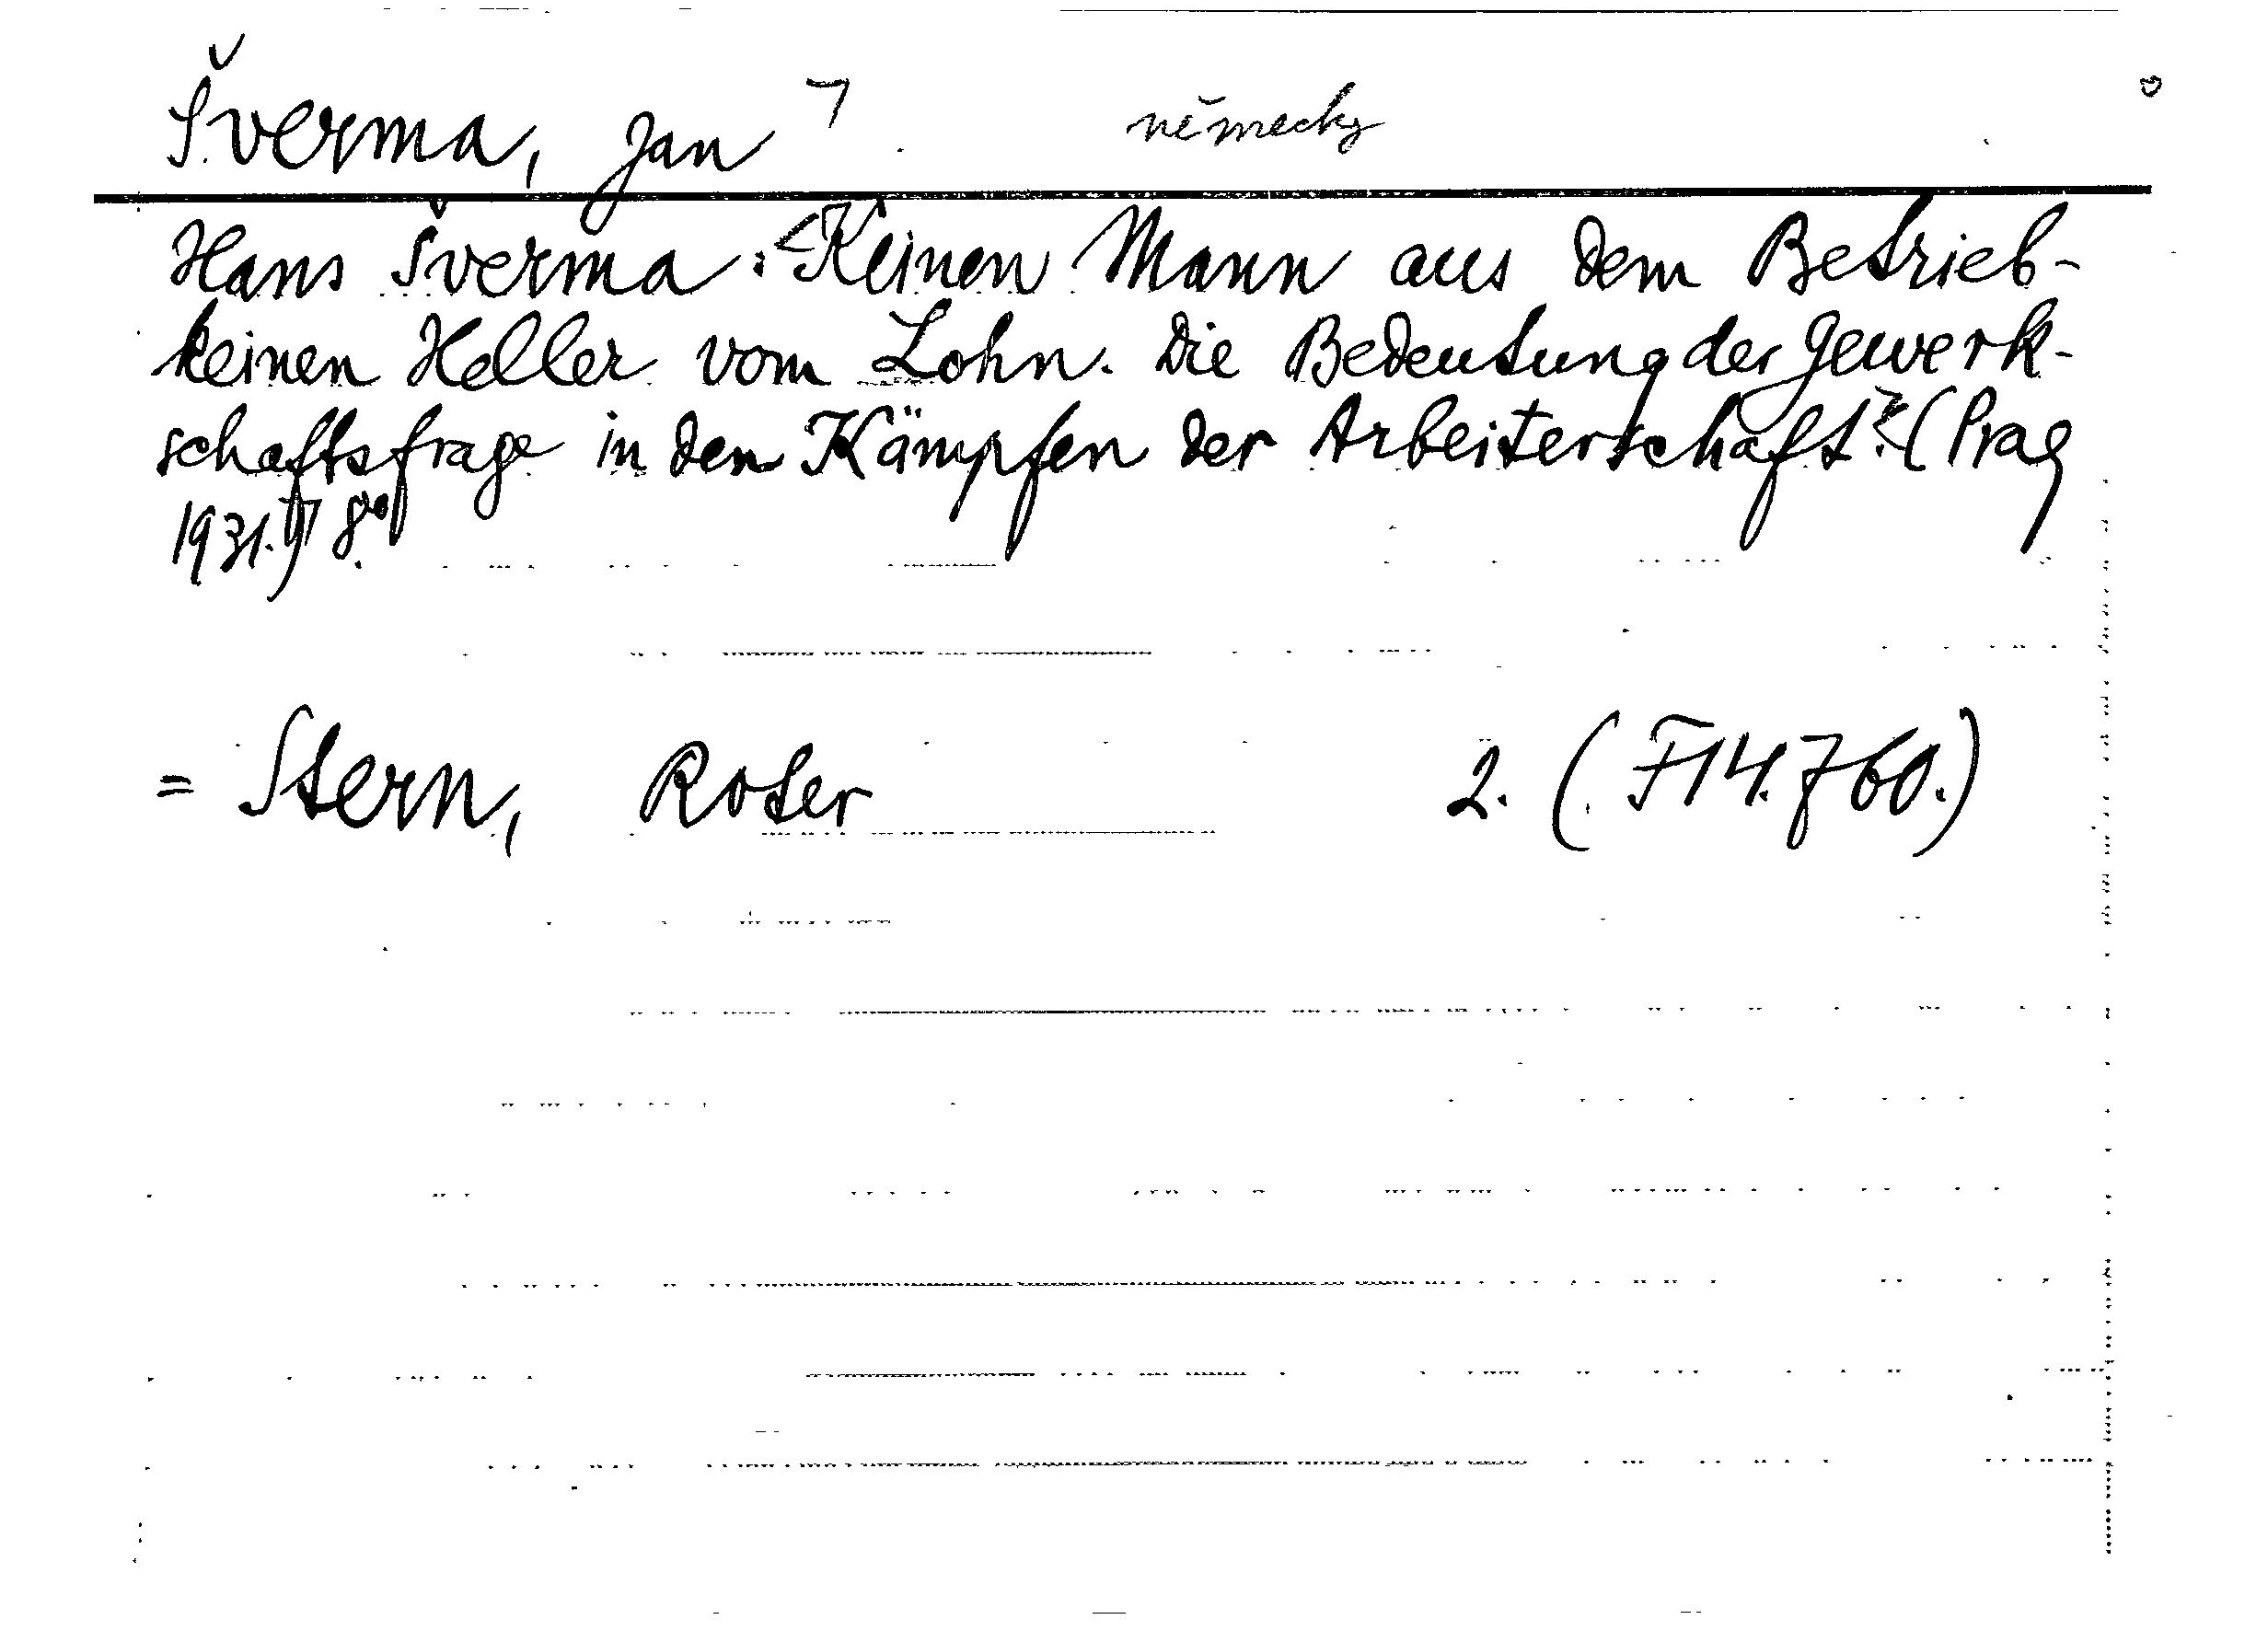 Šverma, Jan ㄱ německy
Hans Šverma: <Keinen Mann aus dem Betrieb-
keinen Heller vom Lohn. Die Bedeutung der Gewerk-
schaftsfrage in den Kämpfen der Arbeiterschaft.> (Prag
1931.) 8°.
= Stern, Roter 2. (F14.760.)